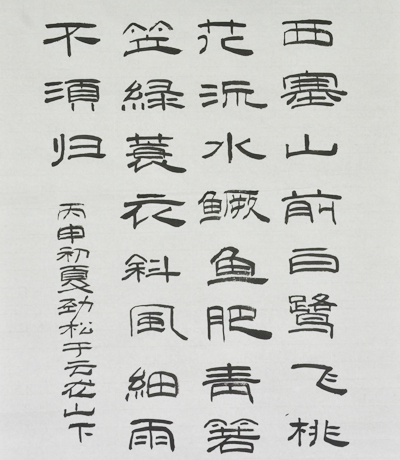 西塞山前白鹭飞桃
花流水鳜鱼肥青箬
笠緑蓑衣斜风細雨
不須归
丙申初夏劲松于云龙山下